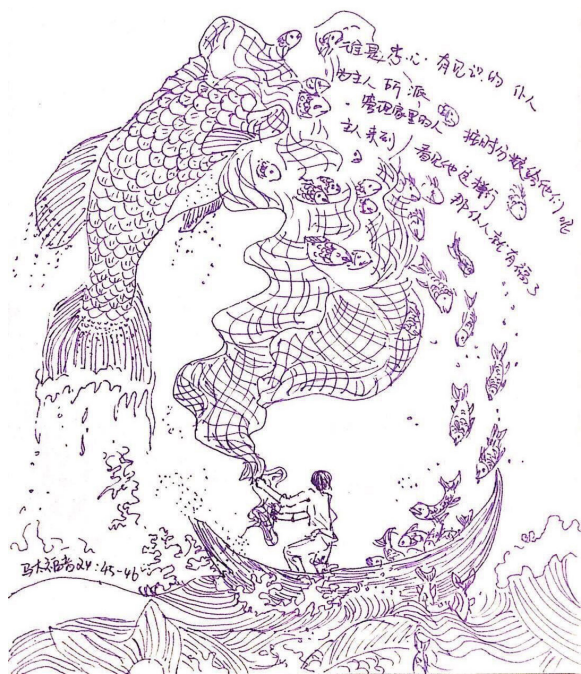 谁是忠心·有见识的 仆人
为主人 所派、
·管理家里的人
按时分粮给他们呢
主人来到
看见他这样行
那仆人就有福了
马太福音24:45-46